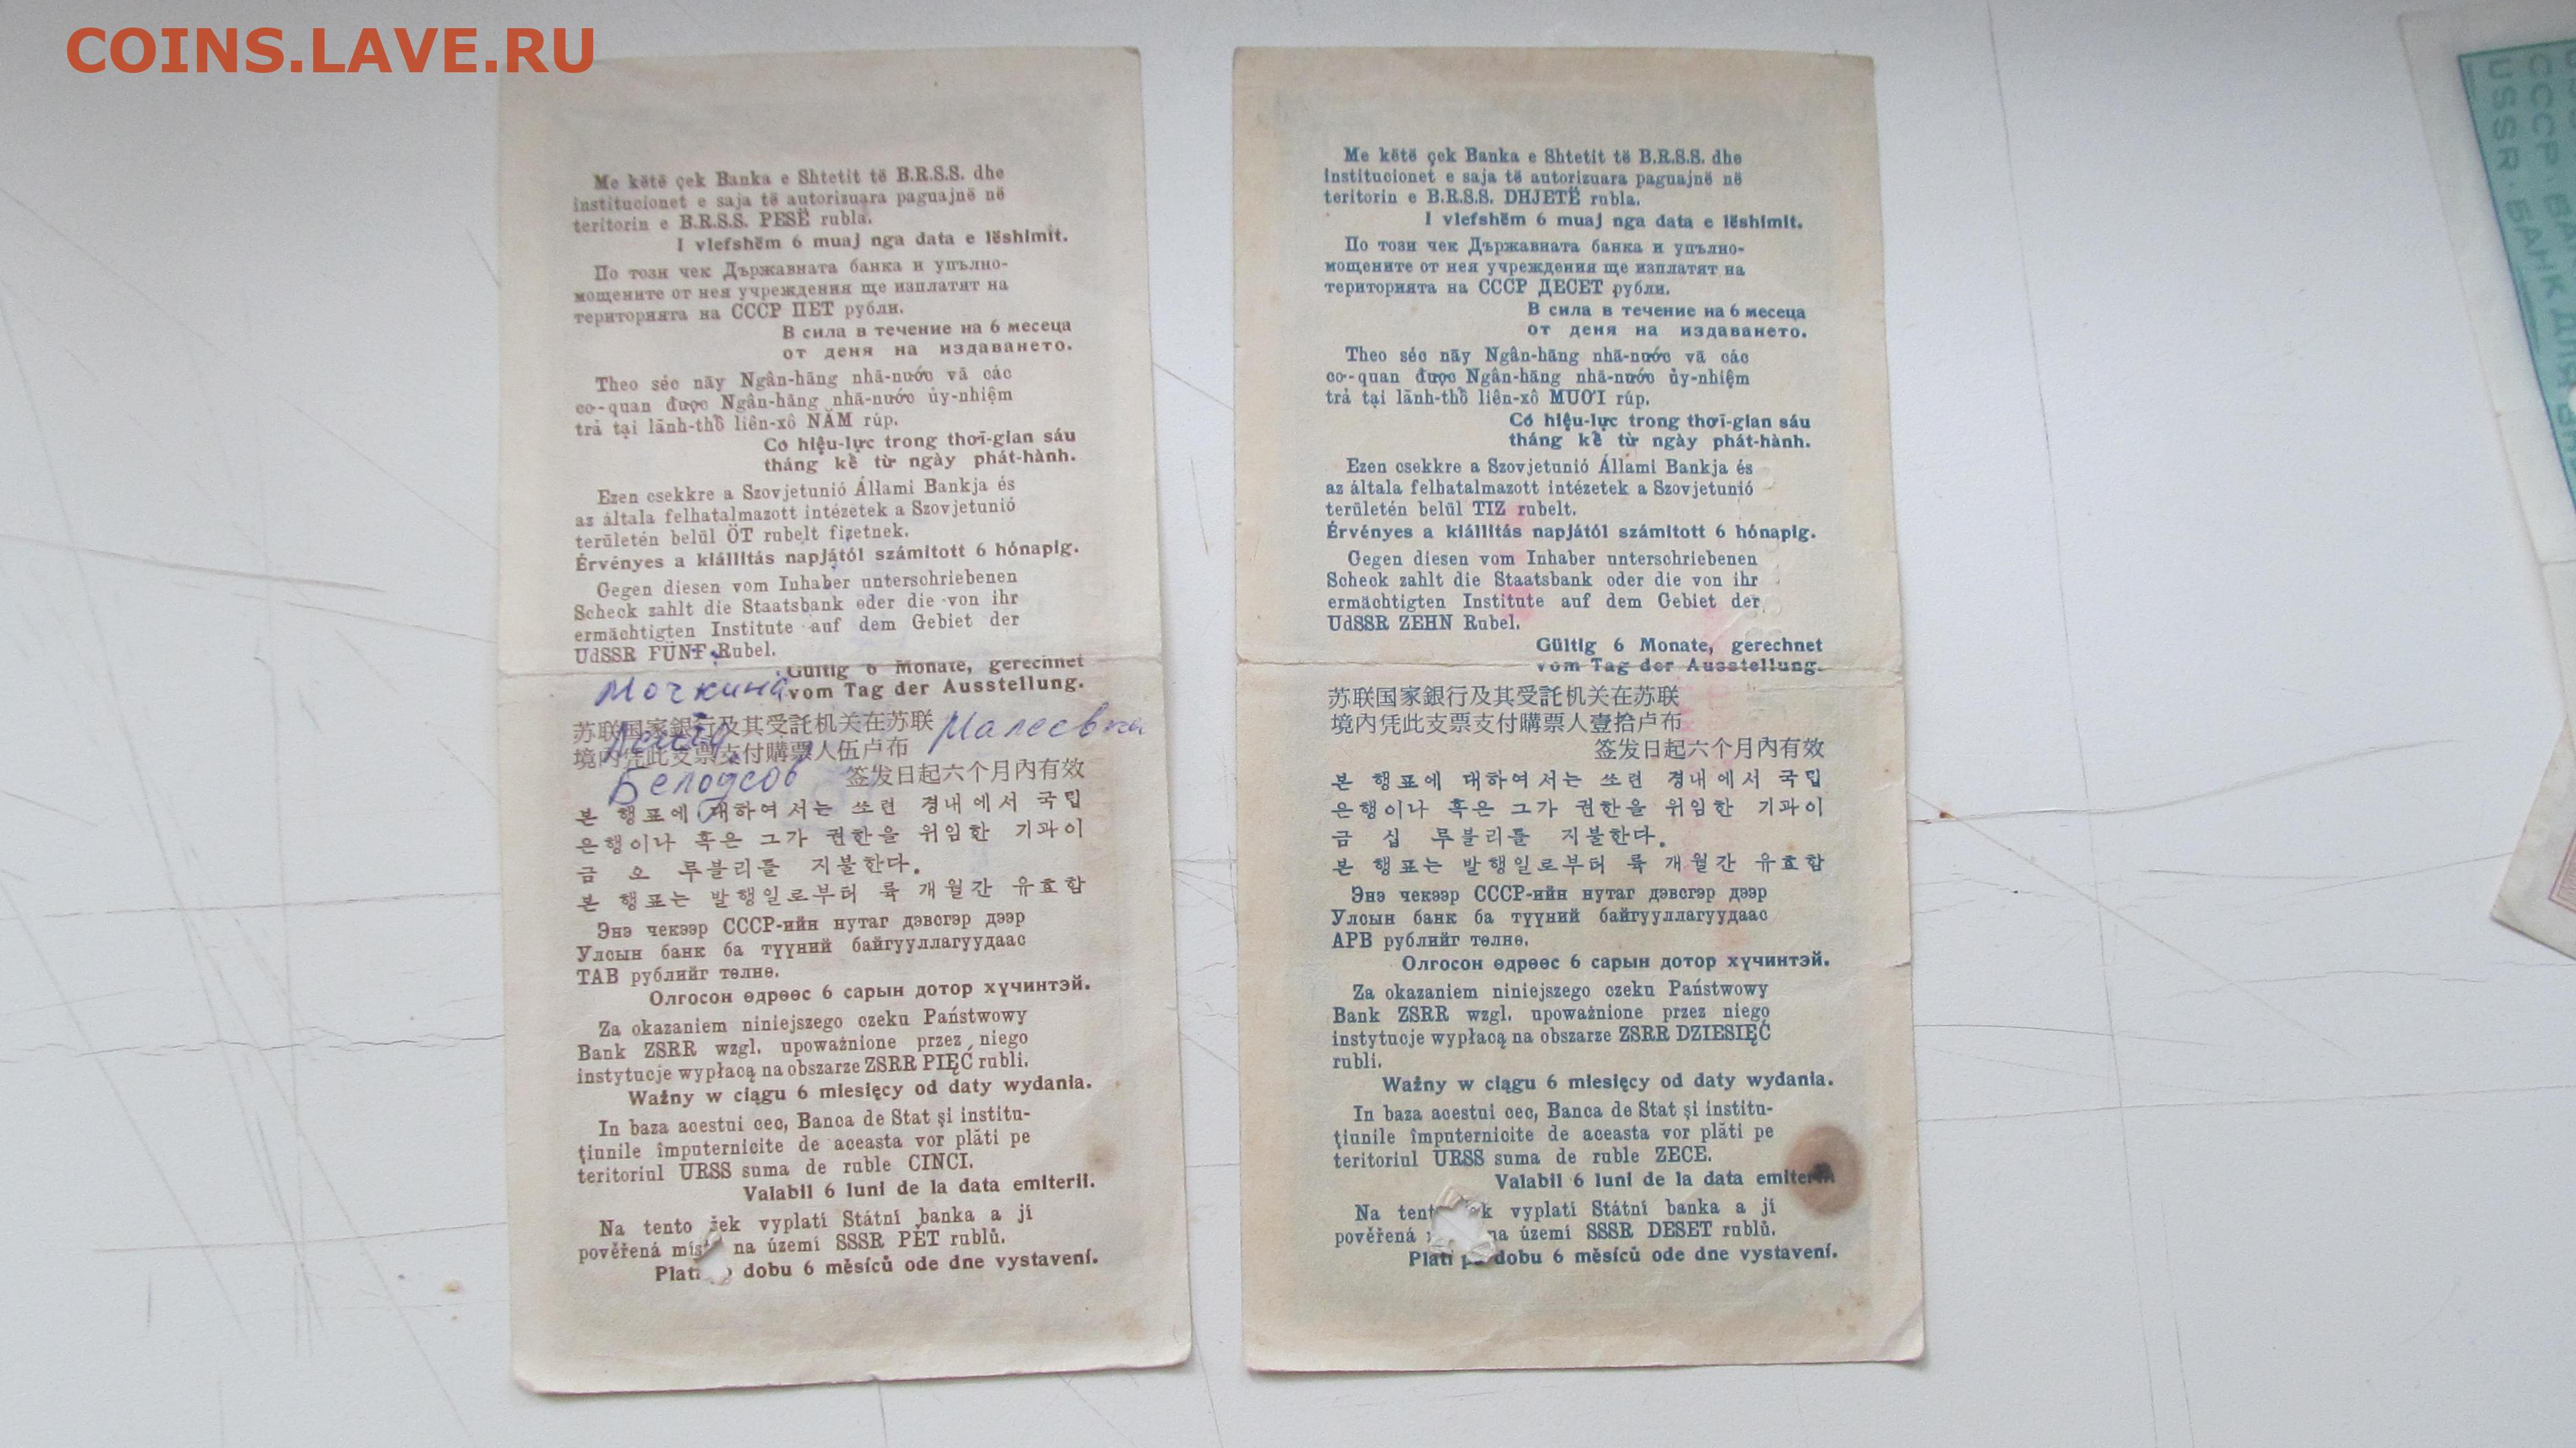 COINS.LAVE.RU
Me këtë çek Banka e Shtetit të B.R.S.S. dhe
institucionet e saja të autorizuara paguajnë në
teritorin e B.R.S.S. PESË rubla.
I vlefshëm 6 muaj nga data e lëshimit.
По този чек Държавната банка и упълно-
мощените от нея учреждения ще изплатят на
територията на СССР ПЕТ рубли.
В сила в течение на 6 месеца
от деня на издаването.
Theo séc nãy Ngân-hãng nhã-nước vã các
cơ-quan được Ngân-hãng nhã-nước ủy-nhiệm
trả tại lãnh-thổ liên-xô NĂM rúp.
Có hiệu-lực trong thơĩ-gian sáu
tháng kể từ ngày phát-hành.
Ezen csekkre a Szovjetunió Állami Bankja és
az általa felhatalmazott intézetek a Szovjetunió
területén belül ÖT rubelt fizetnek.
Érvényes a kiállítás napjától számított 6 hónapig.
Gegen diesen vom Inhaber unterschriebenen
Scheck zahlt die Staatsbank oder die von ihr
ermächtigten Institute auf dem Gebiet der
UdSSR FÜNF Rubel.
Gültig 6 Monate, gerechnet
vom Tag der Ausstellung.
Мочкина
苏联国家銀行及其受託机关在苏联
Малеевка
境内凭此支票支付購票人伍卢布
签发日起六个月内有效
본 행표에 대하여서는 쏘련 경내에서 국립
은행이나 혹은 그가 권한을 위임한 기과이
금 오 루블리를 지불한다.
본 행표는 발행일로부터 륙 개월간 유효함
Энэ чекээр СССР-ийн нутаг дэвсгэр дээр
Улсын банк ба түүний байгууллагуудаас
ТАВ рублийг төлнө.
Олгосон өдрөөс 6 сарын дотор хүчинтэй.
Za okazaniem niniejszego czeku Państwowy
Bank ZSRR wzgl. upoważnione przez niego
instytucje wypłacą na obszarze ZSRR PIĘĆ rubli.
Ważny w ciągu 6 miesięcy od daty wydania.
In baza acestui cec, Banca de Stat şi institu-
ţiunile împuternicite de aceasta vor plăti pe
teritoriul URSS suma de ruble CINCI.
Valabil 6 luni de la data emiterii.
Na tento šek vyplatí Státní banka a jí
pověřená na území SSSR PĚT rublů.
dobu 6 měsíců ode dne vystavení.
Me këtë çek Banka e Shtetit të B.R.S.S. dhe
institucionet e saja të autorizuara paguajnë në
teritorin e B.R.S.S. DHJETË rubla.
I vlefshëm 6 muaj nga data e lëshimit.
По този чек Държавната банка и упълно-
мощените от нея учреждения ще изплатят на
територията на СССР ДЕСЕТ рубли.
В сила в течение на 6 месеца
от деня на издаването.
Theo séc nãy Ngân-hãng nhã-nước vã các
cơ-quan được Ngân-hãng nhã-nước ủy-nhiệm
trả tại lãnh-thổ liên-xô MƯƠI rúp.
Có hiệu-lực trong thơĩ-gian sáu
tháng kể từ ngày phát-hành.
Ezen csekkre a Szovjetunió Állami Bankja és
az általa felhatalmazott intézetek a Szovjetunió
területén belül TIZ rubelt.
Érvényes a kiállítás napjától számított 6 hónapig.
Gegen diesen vom Inhaber unterschriebenen
Scheck zahlt die Staatsbank oder die von ihr
ermächtigten Institute auf dem Gebiet der
UdSSR ZEHN Rubel.
Gültig 6 Monate, gerechnet
vom Tag der Ausstellung.
苏联国家銀行及其受託机关在苏联
境内凭此支票支付購票人壹拾卢布
签发日起六个月内有效
본 행표에 대하여서는 쏘련 경내에서 국립
은행이나 혹은 그가 권한을 위임한 기과이
금 십 루블리를 지불한다.
본 행표는 발행일로부터 륙 개월간 유효함
Энэ чекээр СССР-ийн нутаг дэвсгэр дээр
Улсын банк ба түүний байгууллагуудаас
АРВ рублийг төлнө.
Олгосон өдрөөс 6 сарын дотор хүчинтэй.
Za okazaniem niniejszego czeku Państwowy
Bank ZSRR wzgl. upoważnione przez niego
instytucje wypłacą na obszarze ZSRR DZIESIĘĆ
rubli.
Ważny w ciągu 6 miesięcy od daty wydania.
In baza acestui cec, Banca de Stat şi institu-
ţiunile împuternicite de aceasta vor plăti pe
teritoriul URSS suma de ruble ZECE.
Valabil 6 luni de la data emiterii.
Na vyplatí Státní banka a jí
pověřená na území SSSR DESET rublů.
Platí dobu 6 měsíců ode dne vystavení.
СССР
USSR · БАНК ДЛЯ